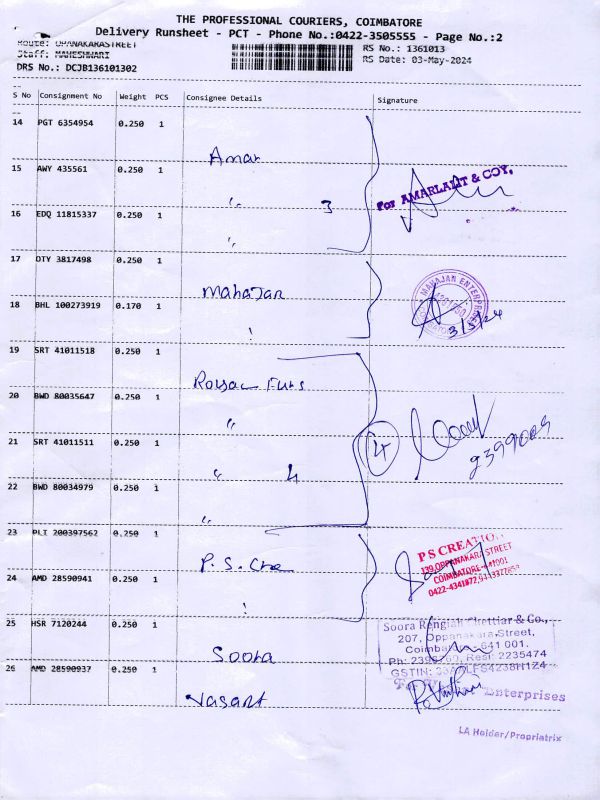 THE PROFESSIONAL COURIERS, COIMBATORE
Delivery Runsheet - PCT - Phone No.:0422-3505555 - Page No.:2
Route: OPANAKARASTREET
Staff: MAHESHWARI
DRS No.: DCJB136101302
RS No.: 1361013
RS Date: 03-May-2024
S No Consignment No Weight PCS Consignee Details Signature
14 PGT 6354954 0.250 1 Amar
15 AWY 435561 0.250 1 〃 3
For AMARLALIT & COY,
16 EDQ 11815337 0.250 1 〃
17 OTY 3817498 0.250 1 Mahajan
MAHAJAN ENTERPRISES
3/5/24
18 BHL 100273919 0.170 1
19 SRT 41011518 0.250 1
20 BWD 80035647 0.250 1 〃
21 SRT 41011511 0.250 1 〃 4
4
22 BWD 80034979 0.250 1 〃
23 PLI 200397562 0.250 1 P.S. Cre
P S CREATIO
139, OPPANAKARA STREET
COIMBATORE-641001
0422-4341872,
24 AMD 28590941 0.250 1
25 HSR 7120244 0.250 1 Soora
Soora Rengiah Chettiar & Co.,
207, Oppanakara Street,
Coimbatore 641 001.
Resi: 2235474
GSTIN:
26 AMD 28590937 0.250 1 Vasant
For
Enterprises
LA Holder/Propriatrix